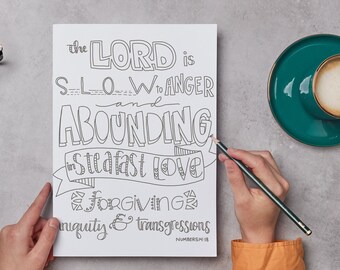 the LORD is
SLOW to ANGER
and
ABOUNDING
in STEAFAST LOVE
FORGIVING
iniquity & transgressions
NUMBERS 14:18